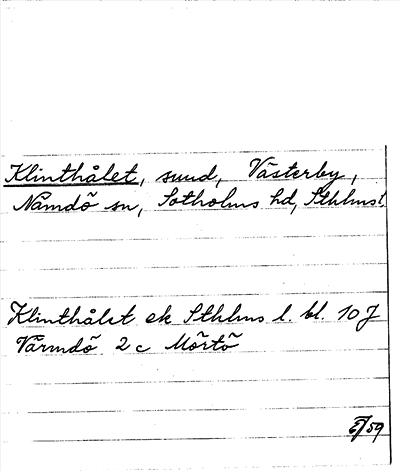 Klinthålet, sund, Västerby,
Nämdö sn, Sotholms hd, Sthlms l.
Klinthålet ek Sthlms l. bl. 10 J
Värmdö 2 c Mörtö